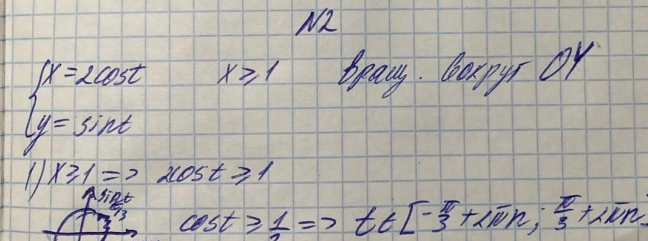 N2
{x = 2cost x ≥ 1 Вращ. вокруг OY
{y = sint
1) x ≥ 1 => 2cost ≥ 1
sint
π/3
cost ≥ 1/2 => t ∈ [-π/3 + 2πn; π/3 + 2πn